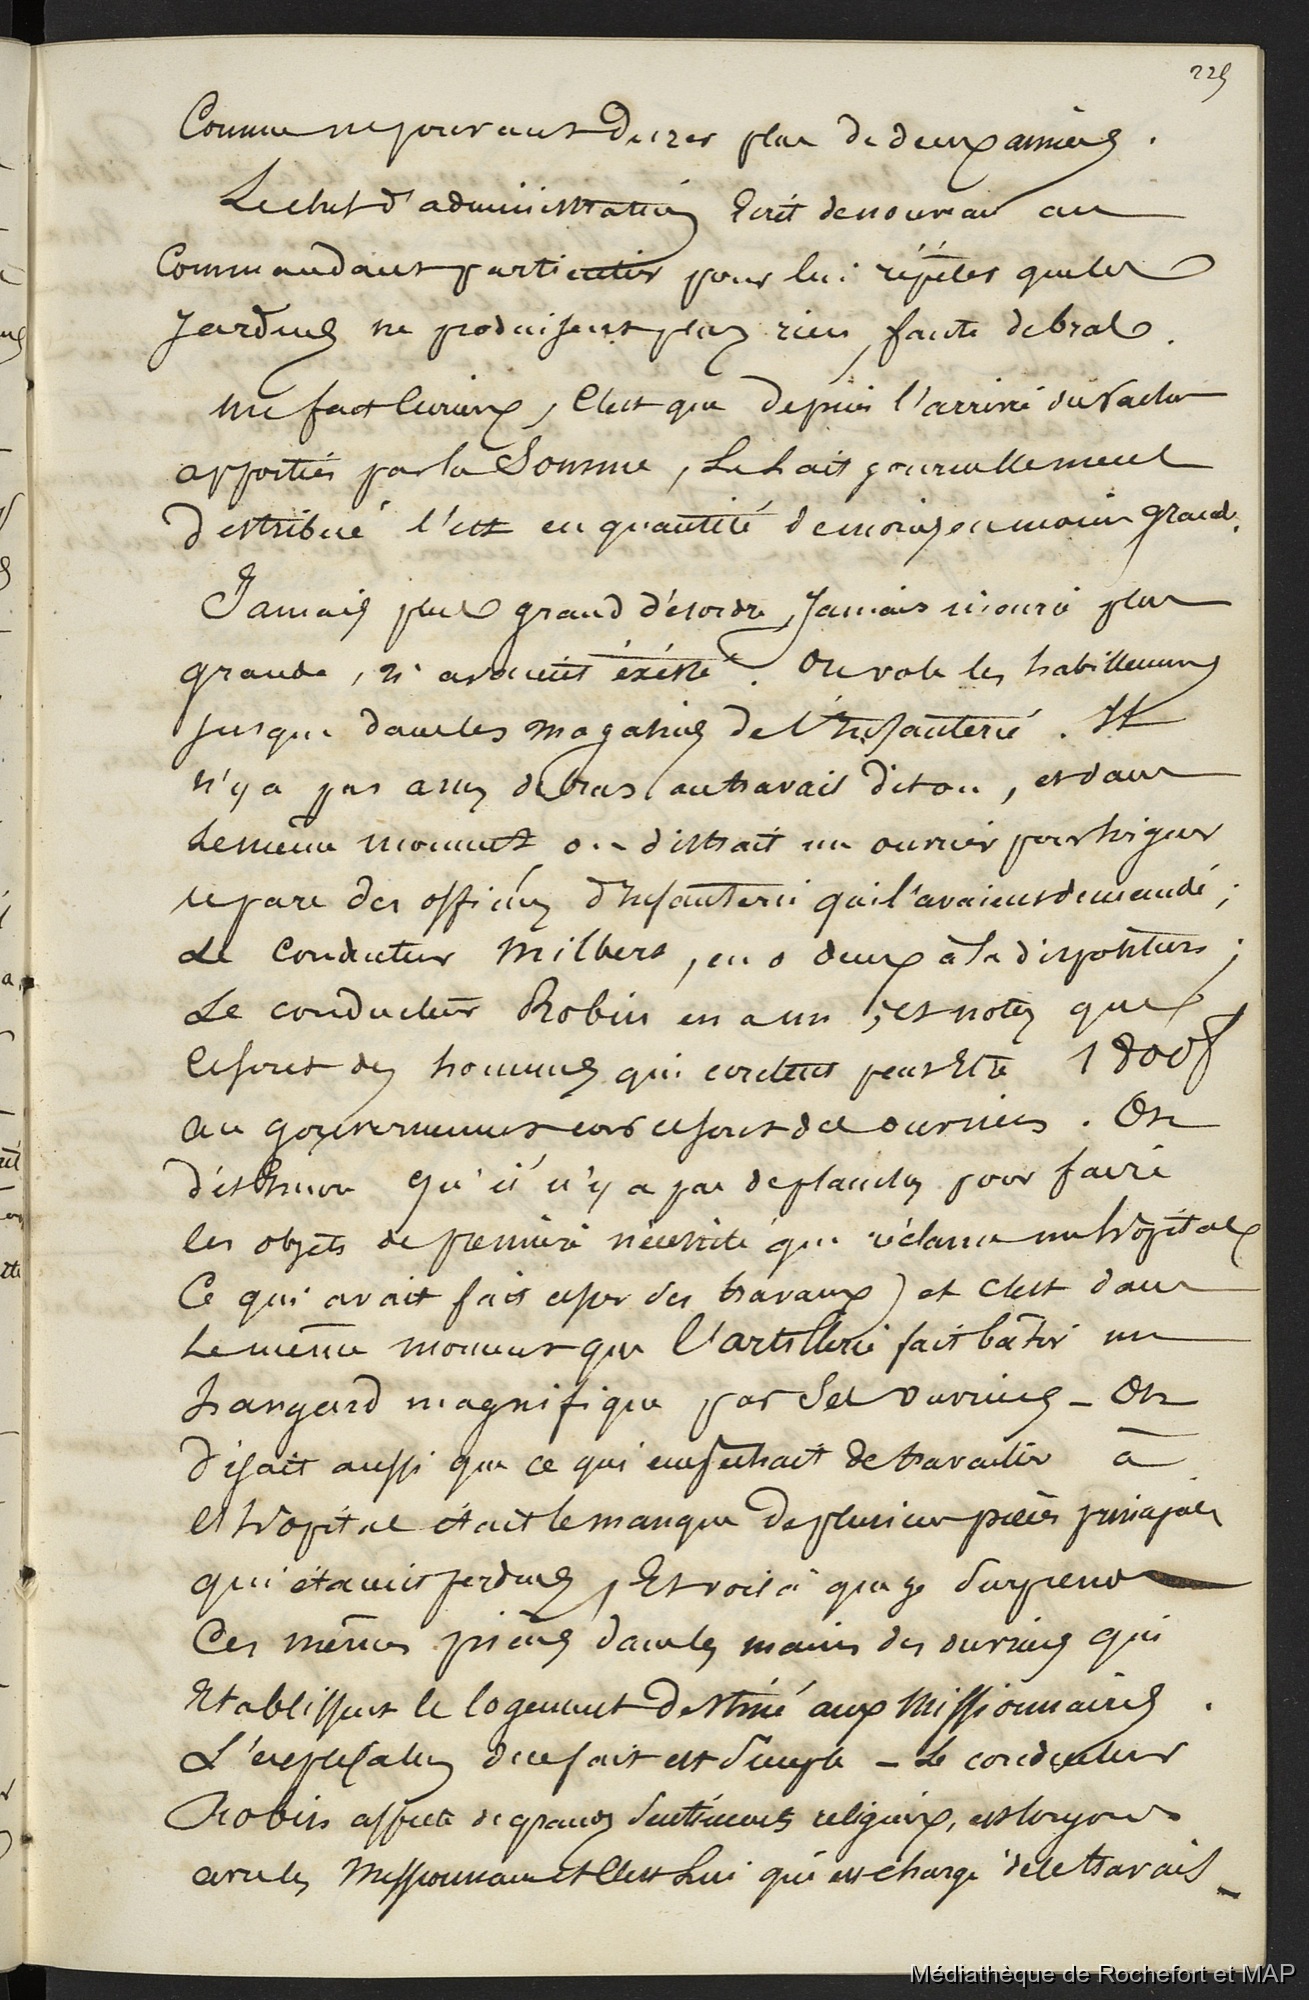 225
Comme ne pouvant durer plus de deux années.
Le chef d'administration Ecrit de nouveau au
Commandant particulier pour lui répéter que les
Jardins ne produisent plus rien, faute de bras.
un fait curieux, C'est que depuis l'arrivé des vaches
apportées par la Somme, Le Lait journellement
distribué l'est en quantité de moins en moins grande.
Jamais plus grand désordre, Jamais incurie plus
grande, n'avaient éxisté. On vole les habillemens
jusque dans les magasins de l'Infanterie. Il
n'y a pas assez de bras au travail dit on, et dans
Le même moment on distrait un ouvrier pour
des officiers d'Infanterie qui l'avaient demandé;
Le Conducteur Milbert, en a deux à sa disposition;
Le conducteur Robin en a un; et notez que
ce sont des hommes qui coutent peut Etre 1800f
au gouvernement car ce sont des ouvriers. On
dit Encore qu'il n'y a pas de planches pour faire
les objets de première nécessité que réclame un hôpital
Ce qui avait fait cesser des travaux) et c'est dans
Le même moment que l'artillerie fait bâtir un
hangard magnifique par Ses Ouvriers _ On
disait aussi que ce qui empêchait de travailler à
l'hôpital était le manque de plusieurs pièces principales
qui étaient perdues, Et voilà que je Surprend
Ces mêmes pièces dans les mains des ouvriers qui
Etablissent le logement destiné aux Missionnaires.
L'explication de ce fait est Simple _ Le conducteur
Robin affecte de grands Sentiments religieux, est toujours
avec les Missionnaires et C'est Lui qui est chargé de le travail _
Médiathèque de Rochefort et MAP